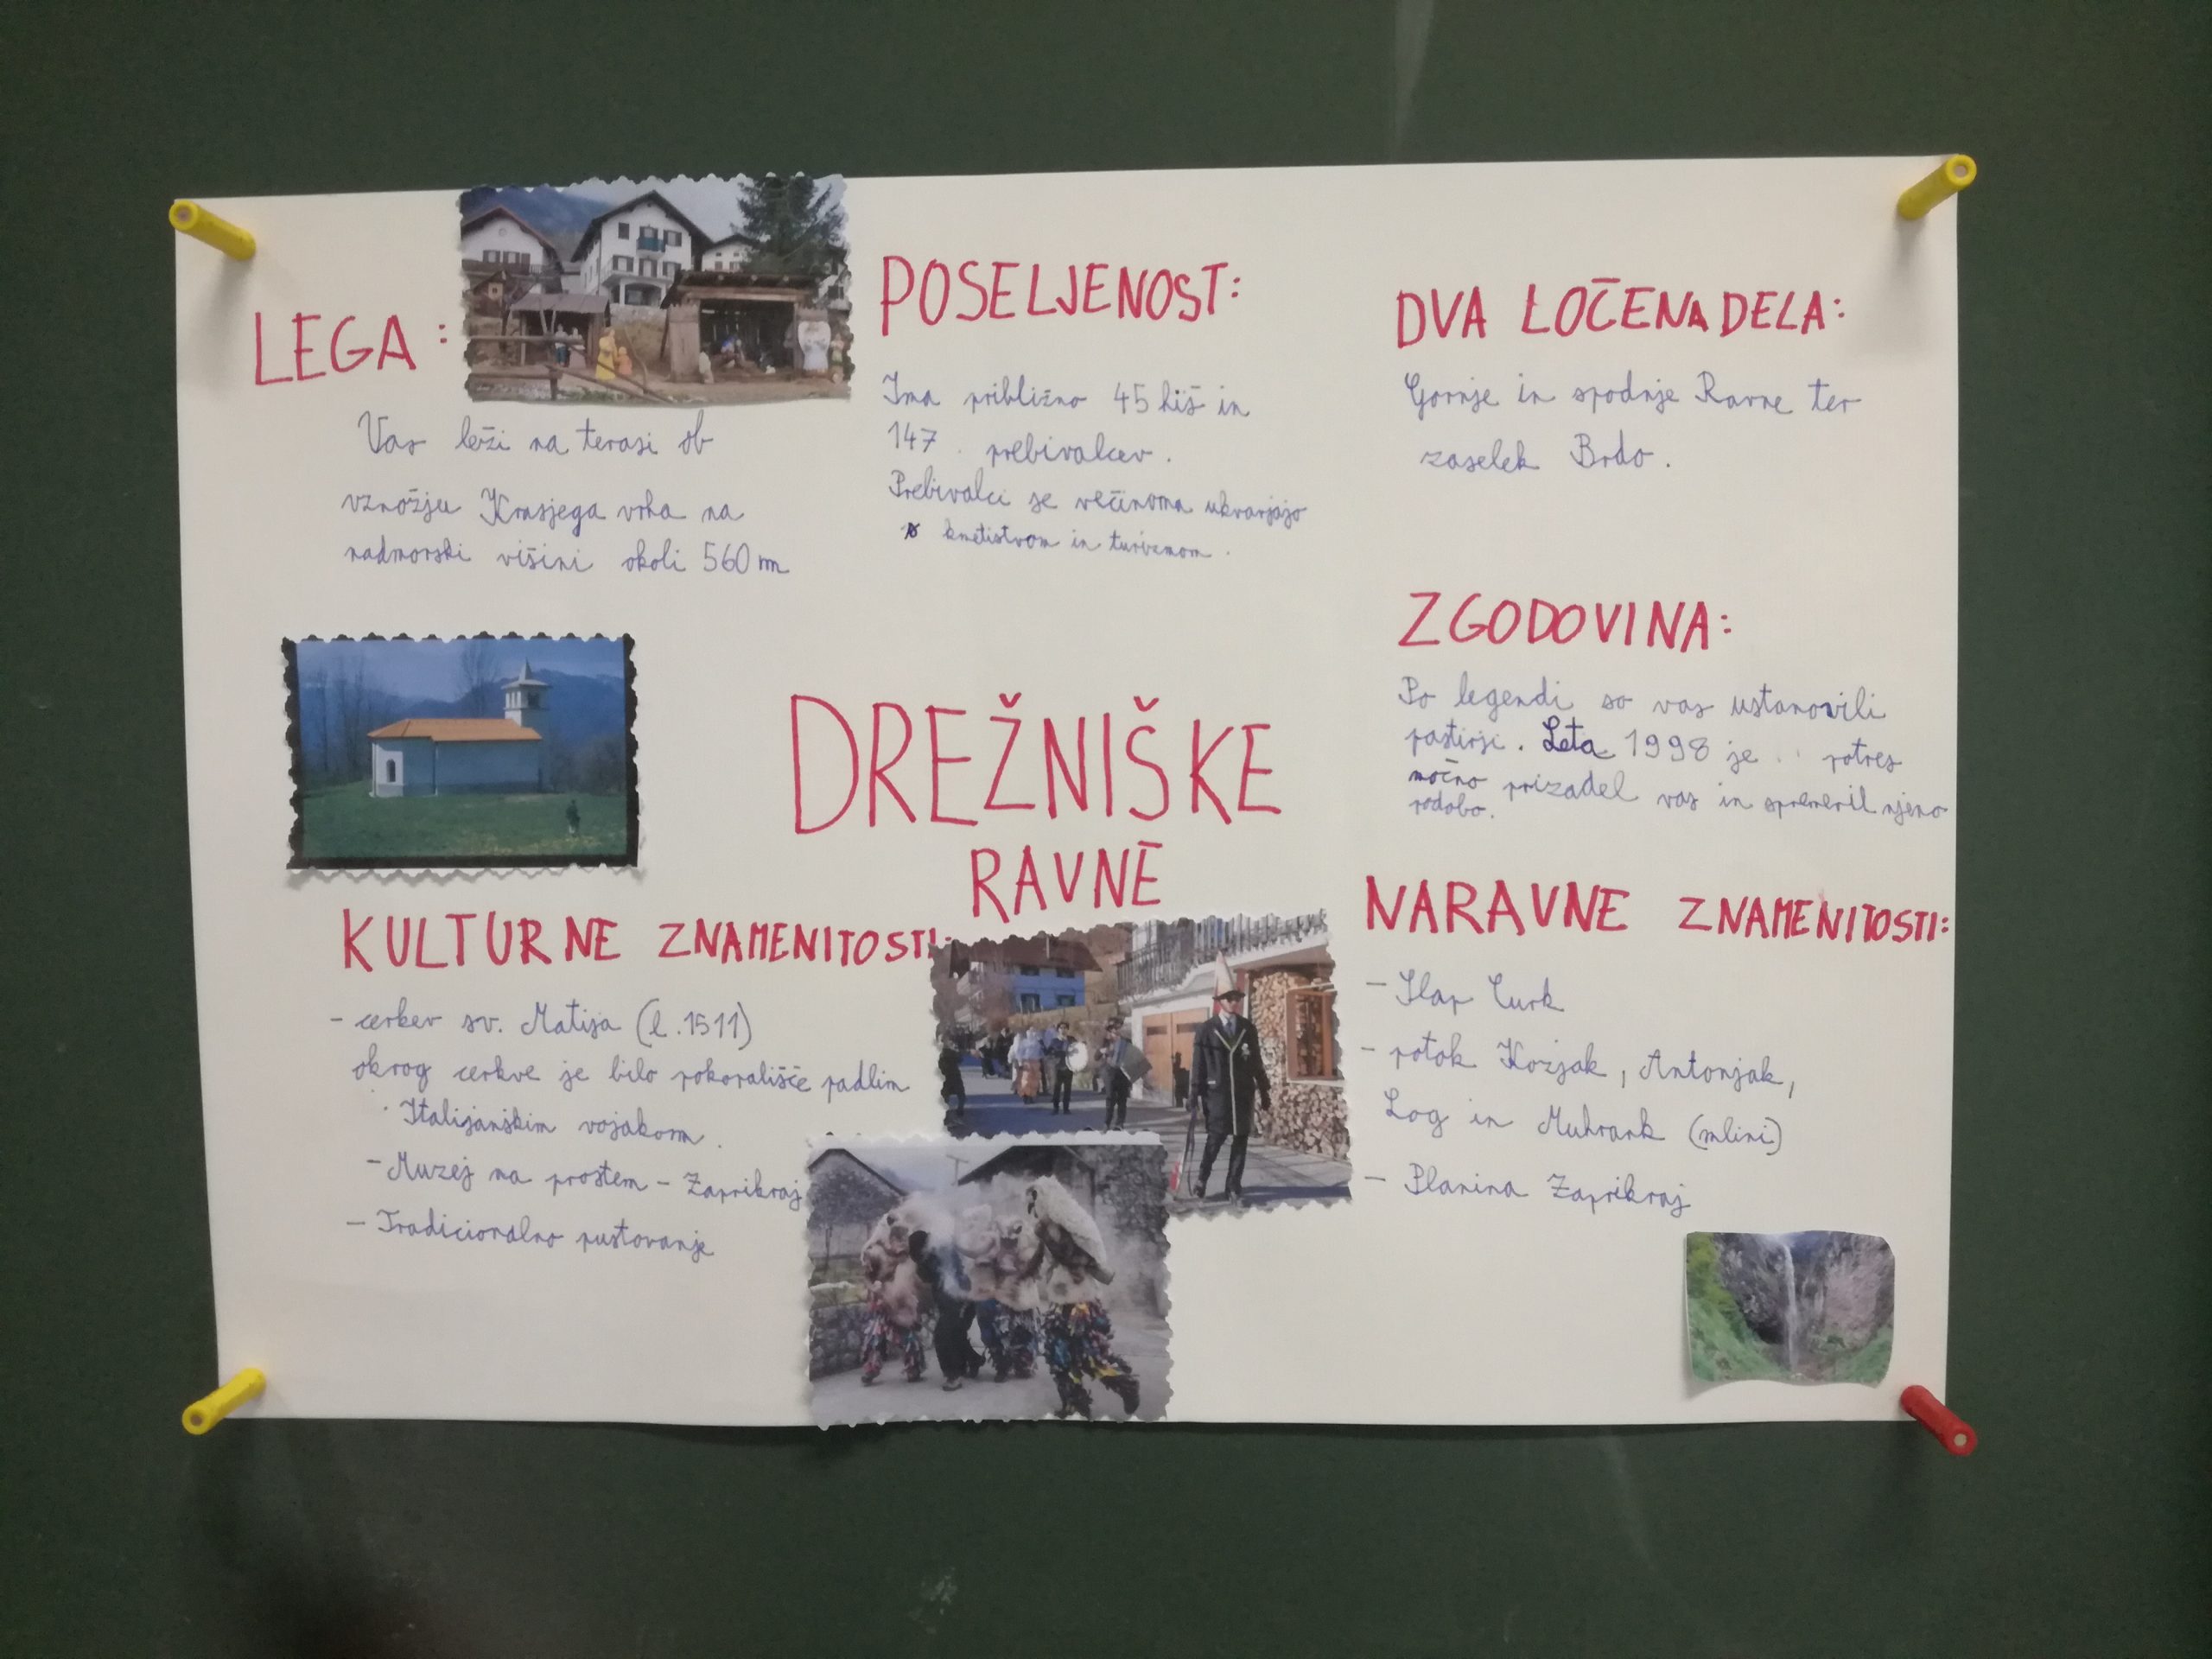 LEGA:
Vas leži na terasi ob
vznožju Krasjega vrha na
nadmorski višini okoli 560 m
POSELJENOST:
Ima približno 45 hiš in
147 prebivalcev.
Prebivalci se večinoma ukvarjajo
s kmetistvom in turizmom.
DVA LOČENA DELA:
Gornje in spodnje Ravne ter
zaselek Brdo.
ZGODOVINA:
Po legendi so vas ustanovili
pastirji. Leta 1998 je potres
močno prizadel vas in spremenil njeno
podobo.
DREŽNIŠKE
RAVNE
KULTURNE ZNAMENITOSTI:
- cerkev sv. Matija (l. 1511)
okrog cerkve je bilo pokopališče padlim
Italijanskim vojakom.
- Muzej na prostem - Zaprikraj
- Tradicionalno pustovanje
NARAVNE ZNAMENITOSTI:
- Slap Curk
- potok Kozjak, Antonjak,
Log in Muhrank (mlini)
- Planina Zaprikraj